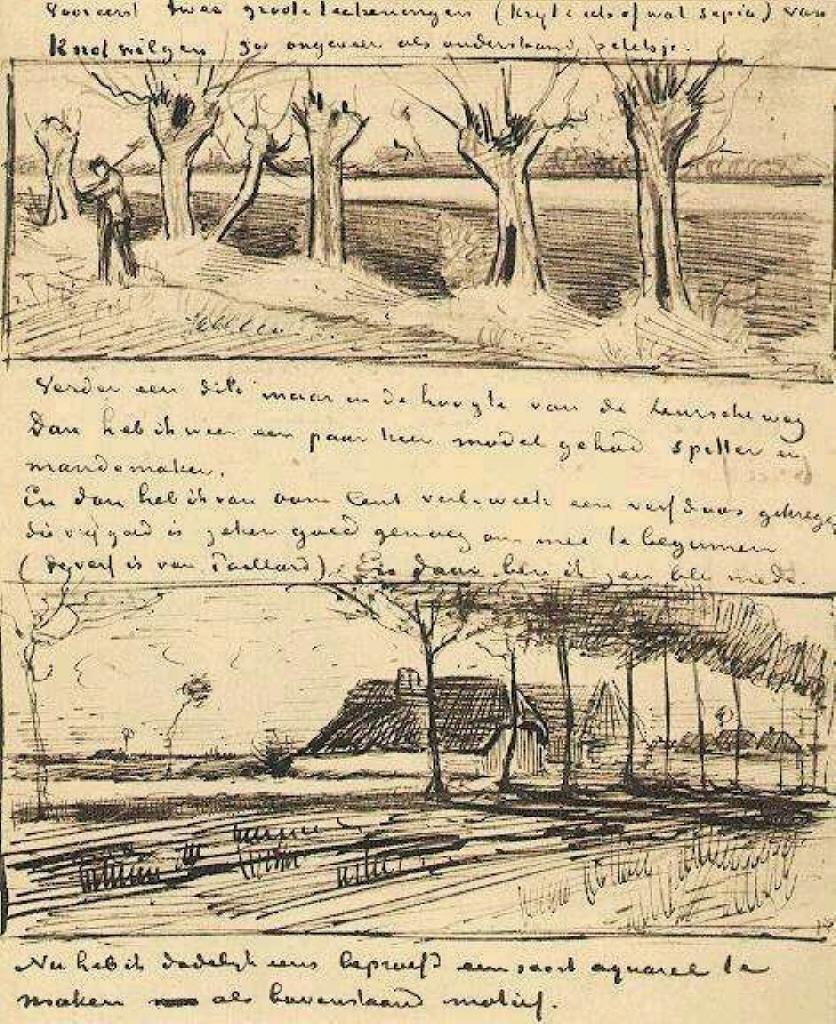 Vooreerst twee groote teekeningen (krijt & iets of wat sepia) van
Knotwilgen zoo ongeveer als onderstaand schetsje.
Verder een dito maar in de hoogte van de Leurscheweg
Dan heb ik weer een paar keer model gehad spitter en
mandemaker.
En dan heb ik van oom Cent verl. week een verfdoos gekregen
die vrij goed is zeker goed genoeg om mee te beginnen
(de verf is van Paillard). En daar ben ik zeer blij mede.
Nu heb ik dadelijk eens beproefd een soort aquarel te
maken als bovenstaand motief.